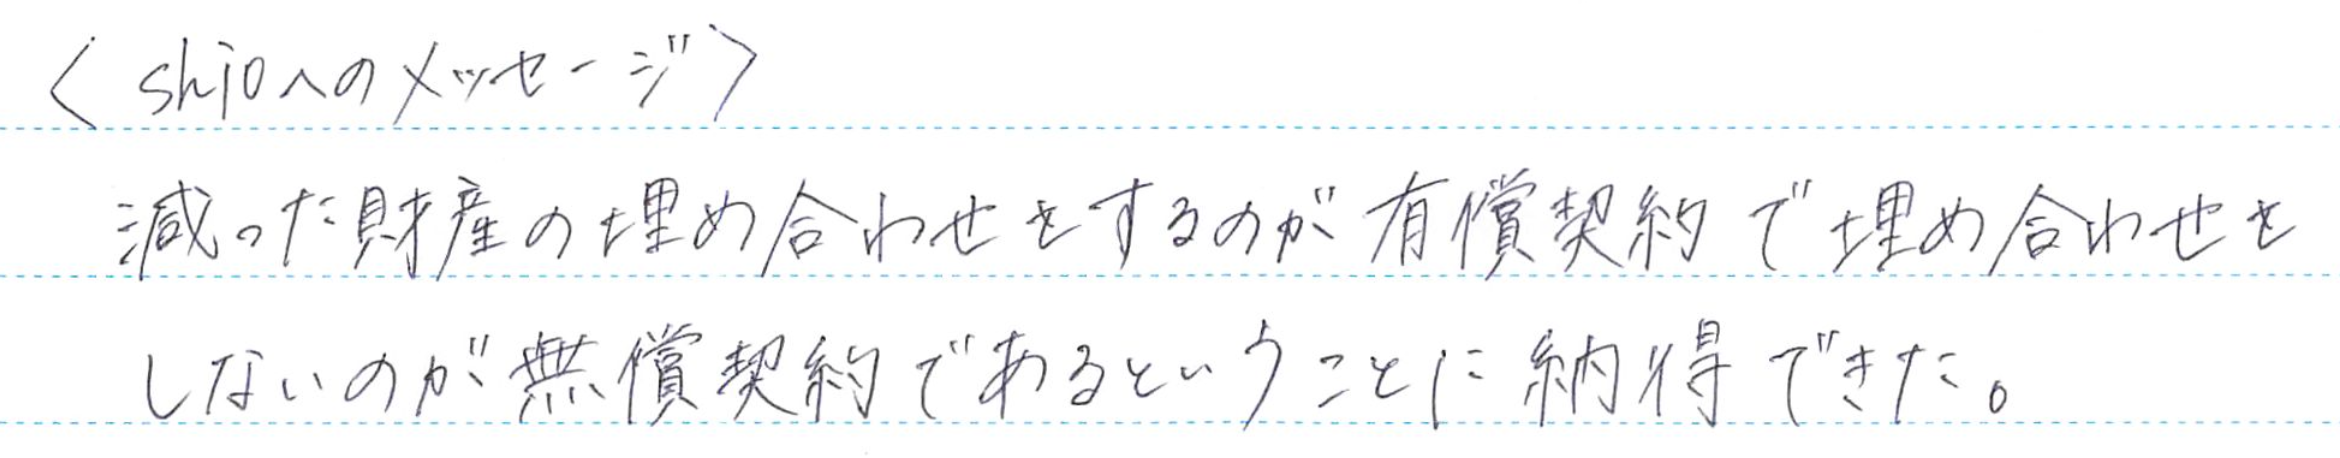 〈shioへのメッセージ〉
減った財産の埋め合わせをするのが有償契約で埋め合わせを
しないのが無償契約であるということに納得できた。